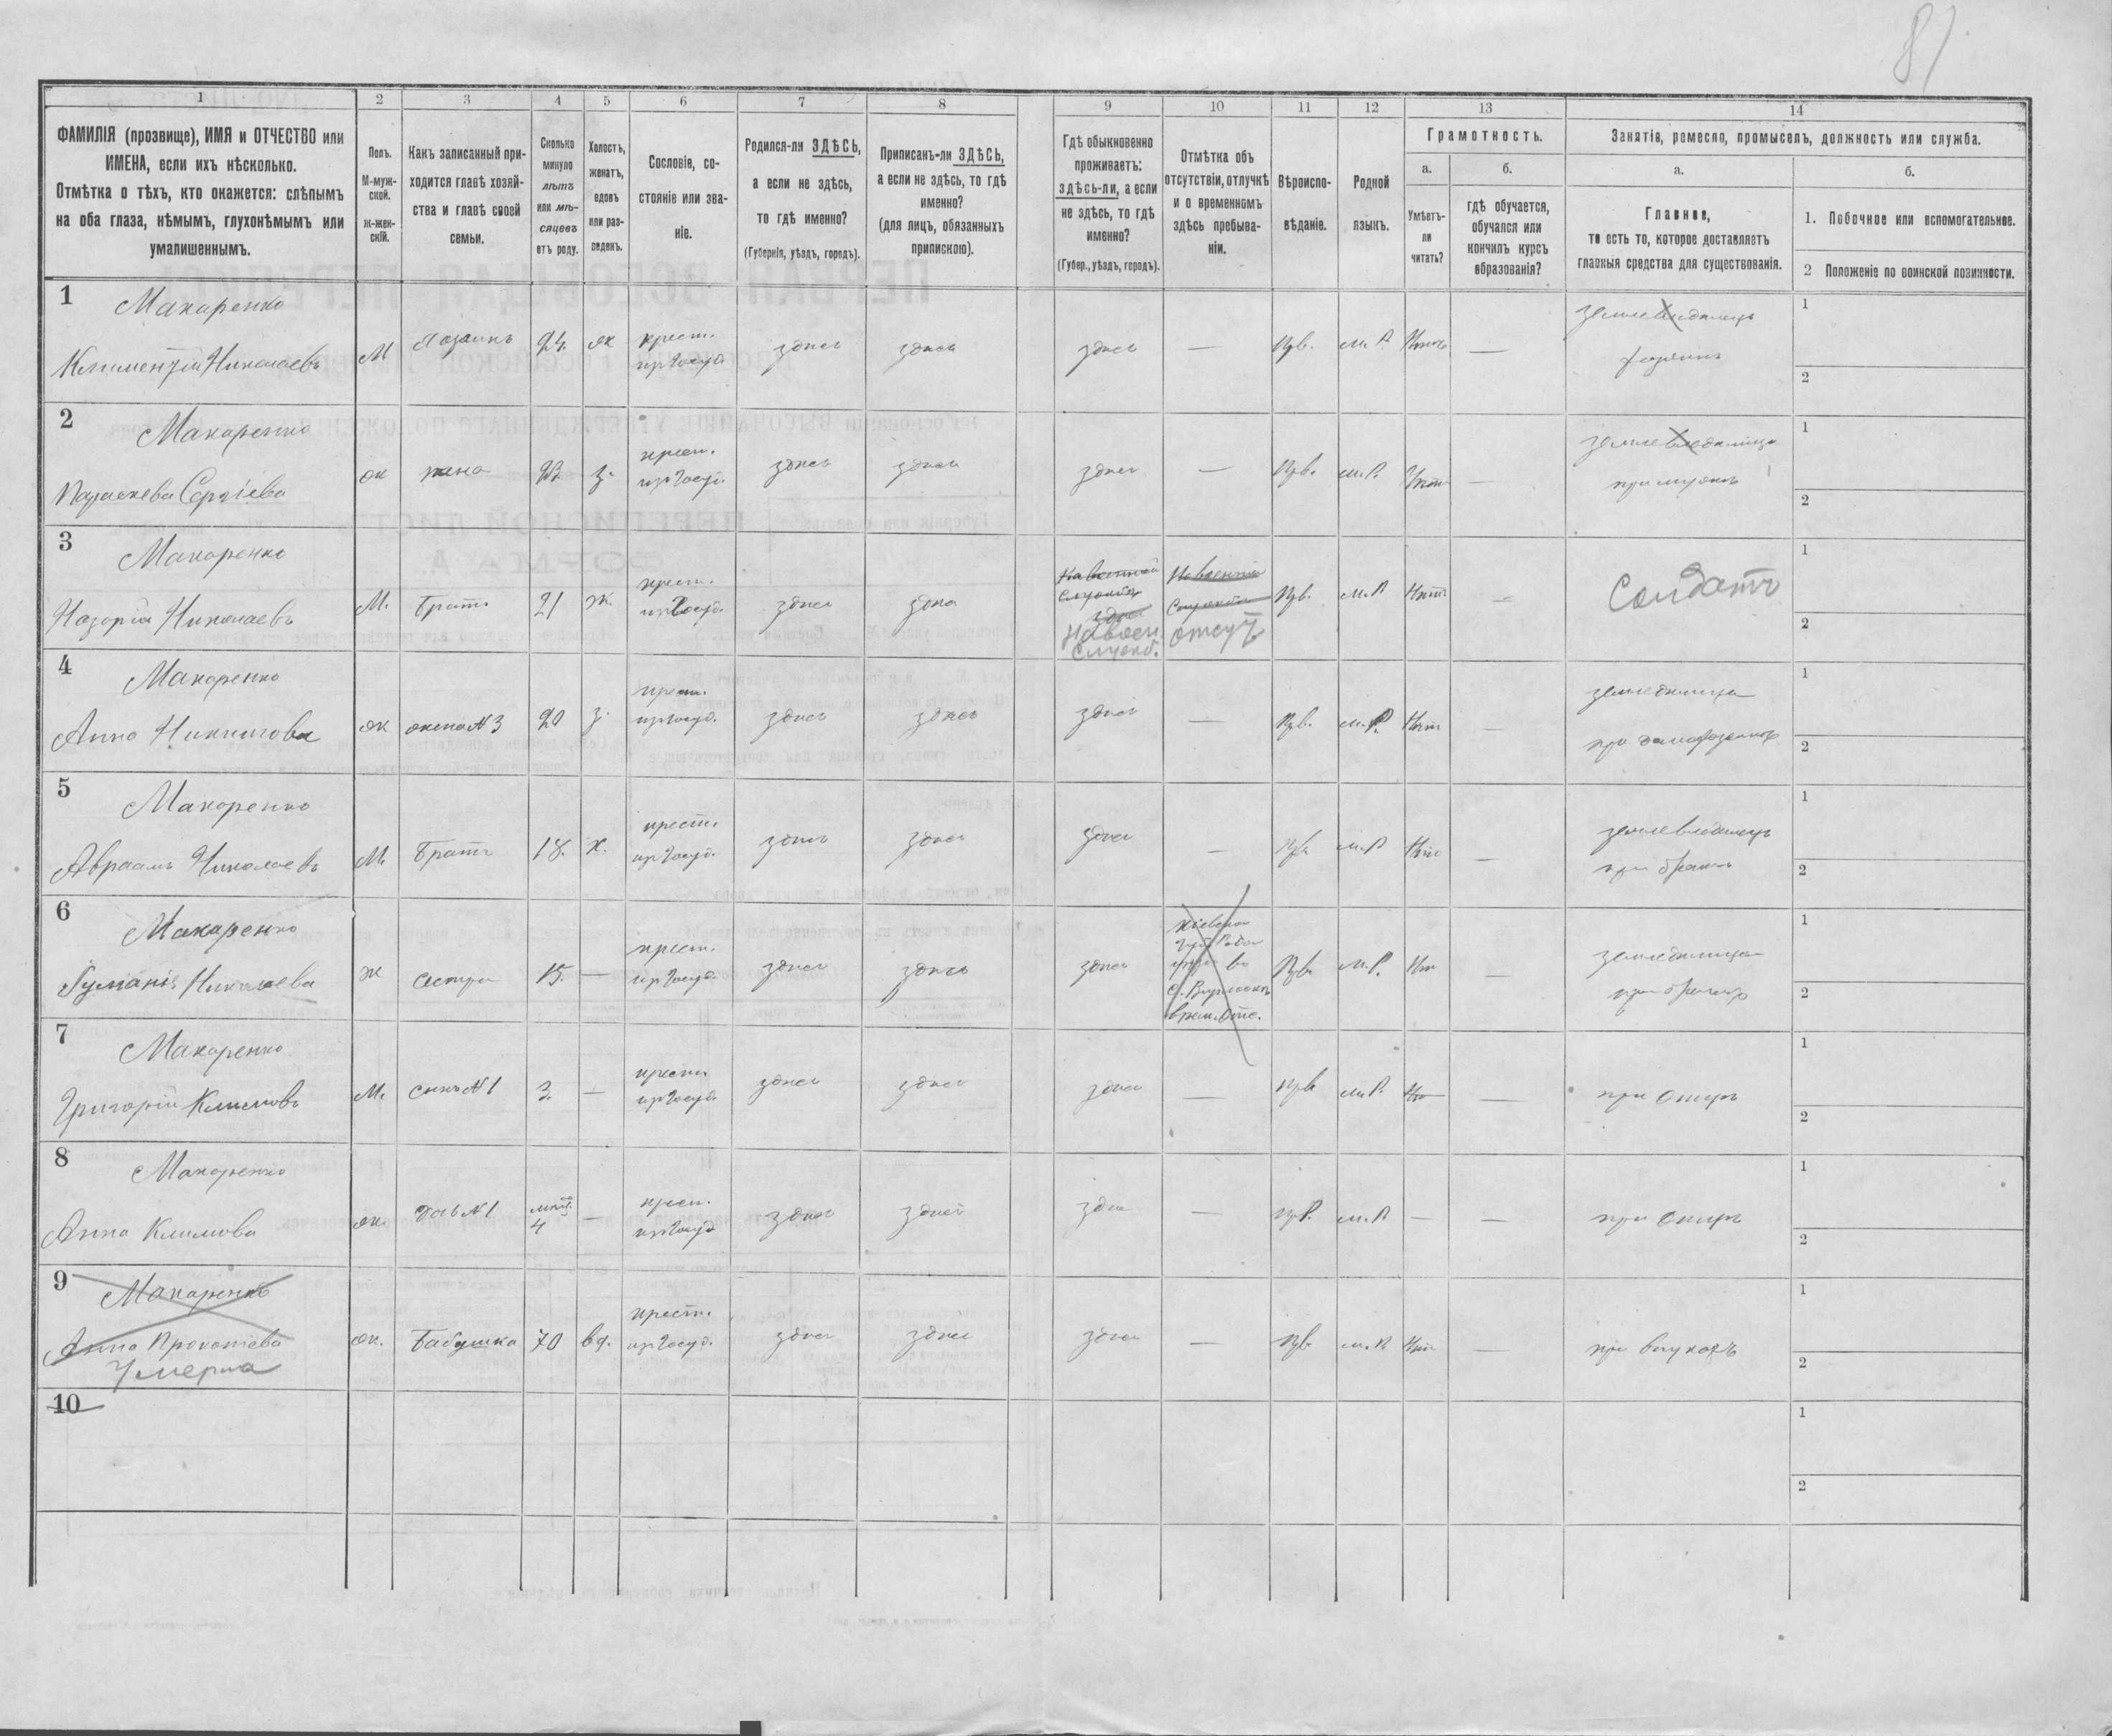 81
1 2 3 4 5 6 7 8 9 10 11 12 13 14
ФАМИЛІЯ (прозвище), ИМЯ и ОТЧЕСТВО или
ИМЕНА, если ихъ нѣсколько.
Отмѣтка о тѣхъ, кто окажется: слѣпымъ
на оба глаза, нѣмымъ, глухонѣмымъ или
умалишеннымъ.
Полъ.
М-муж-
ской.
ж-жен-
скій.
Какъ записанный при-
ходится главѣ хозяй-
ства и главѣ своей
семьи.
Сколько
минуло
лѣтъ
или мѣ-
сяцевъ
отъ роду.
Холостъ,
женатъ,
вдовъ
или раз-
веденъ.
Сословіе, со-
стояніе или зва-
ніе.
Родился-ли ЗДѢСЬ,
а если не здѣсь,
то гдѣ именно?
(Губернія, уѣздъ, городъ).
Приписанъ-ли ЗДѢСЬ,
а если не здѣсь, то гдѣ
именно?
(для лицъ, обязанныхъ
припискою).
Гдѣ обыкновенно
проживаетъ:
здѣсь-ли, а если
не здѣсь, то гдѣ
именно?
(Губер., уѣздъ, городъ).
Отмѣтка объ
отсутствіи, отлучкѣ
и о временномъ
здѣсь пребыва-
ніи.
Вѣроиспо-
вѣданіе.
Родной
языкъ.
Грамотность.
а.
Умѣетъ-
ли
читать?
б.
гдѣ обучается,
обучался или
кончилъ курсъ
образованія?
Занятія, ремесло, промыселъ, должность или служба.
а.
Главное,
то есть то, которое доставляетъ
главныя средства для существованія.
б.
1. Побочное или вспомогательное.
2 Положеніе по воинской повинности.
1 Макаренко
Климентій Николаевъ М Хозяинъ 24. ж крест.
из госуд. здѣсь здѣсь здѣсь — Прв. м. Р. — хозяинъ
1
2
2 Макаренко
Параскева Сергіева ж жена 23. з. крест.
из госуд. здѣсь здѣсь здѣсь — Прв. м. Р. — при мужѣ
1
2
3 Макаренко
Назарій Николаевъ М. братъ 21 ж. крест.
из госуд. здѣсь здѣсь На военной
службѣ
здѣсь
На воен.
служб. На военной
службѣ
отсут Прв. м. Р Нѣтъ — Солдатъ
1
2
4 Макаренко
Анна ж жена N 3 20 з. крест.
из госуд. здѣсь здѣсь здѣсь — Прв. м. Р. Нѣтъ —
1
2
5 Макаренко
Авраамъ Николаевъ М. братъ 18. х. крест.
из госуд. здѣсь здѣсь здѣсь — Прв. м. Р Нѣтъ — землевладѣлецъ
при братѣ
1
2
6 Макаренко
Николаева ж сестра 15. — крест.
из госуд. здѣсь здѣсь здѣсь Прв. м. Р. Нѣт —
1
2
7 Макаренко
Григорій Климовъ М. сынъ N 1 3. — крест.
из госуд. здѣсь здѣсь здѣсь — Прв. м. Р. — при отцѣ
1
2
8 Макаренко
Анна Климова ж. дочь N 1 4 — крест.
из госуд. здѣсь здѣсь здѣсь — м. Р — — при отцѣ
1
2
9 Макаренко
Анна Прокопіева
Умерла ж. бабушка 70 вд. крест.
из госуд. здѣсь здѣсь здѣсь — Прв. м. Р Нѣт — при внукахъ
1
2
10
1
2